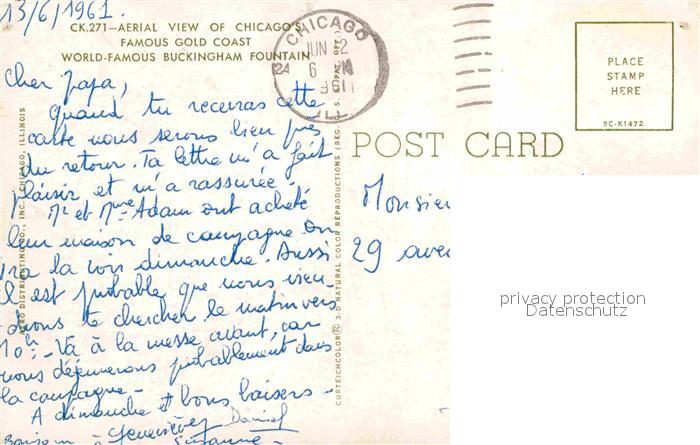 13/6/1961.
CK.271—AERIAL VIEW OF CHICAGO'S
FAMOUS GOLD COAST
WORLD-FAMOUS BUCKINGHAM FOUNTAIN
CHICAGO
JUN 2
6 M
1961
ILL
PLACE
STAMP
HERE
9C-K1472
POST CARD
Cher papa,
Quand tu recevras cette
carte nous serons bien près
du retour. Ta lettre m'a fait
plaisir et m'a rassurée.
Mr et Mme Adam ont acheté
leur maison de campagne on
ira la voir dimanche. Aussi
il est probable que nous vien-
drons te chercher le matin vers
10h - Va à la messe avant, car
nous déjeunerons probablement dans
la campagne -
A dimanche et bons baisers -
Geneviève Daniel
Bonjour à Suzanne -
Monsieur
29 ave
AERO DISTRIBUTING CO., INC., CHICAGO, ILLINOIS
CURTEICHCOLOR® 3-D NATURAL COLOR REPRODUCTIONS (REG. U.S.A. PAT. OFF.)
privacy protection
Datenschutz